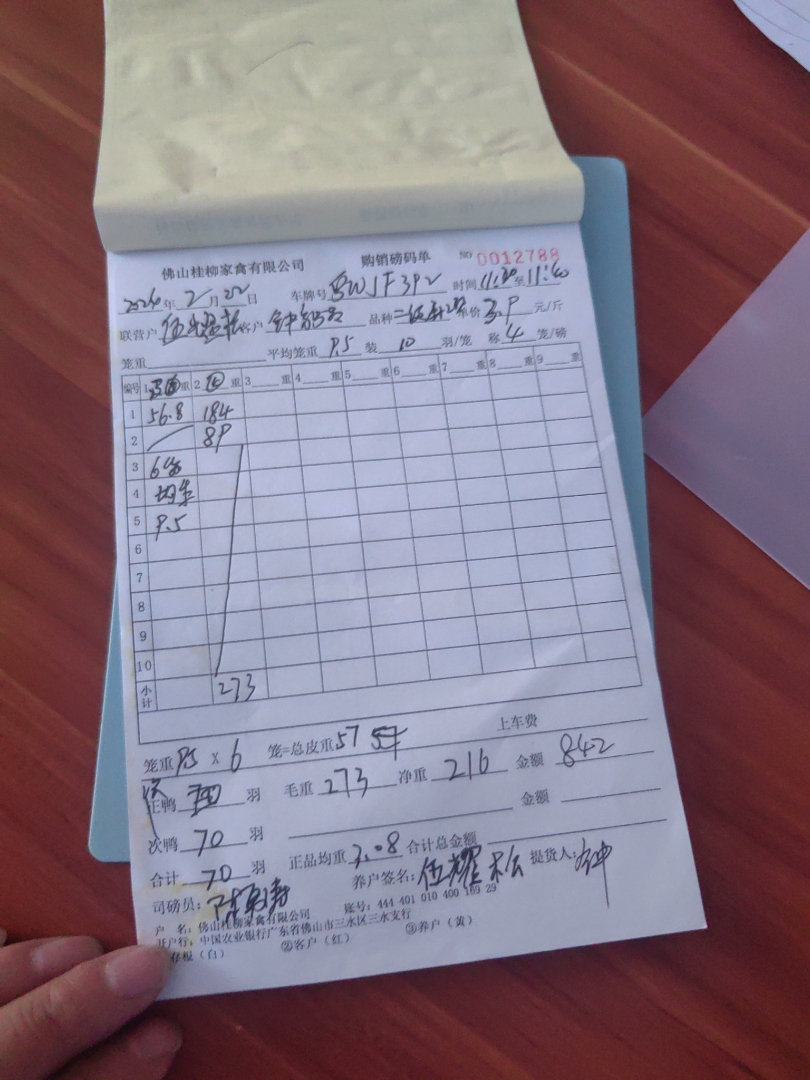 佛山桂柳家禽有限公司 购销磅码单 NO 0012788
2024年2月22日 车牌号 时间11:20至11:40
联营户 客户 品种 单价3.9元/斤
笼重 平均笼重9.5 装10羽/笼 称4笼/磅
编号 1 重 2 重 3 重 4 重 5 重 6 重 7 重 8 重 9 重
1 56.8 184
2 89
3 6笼
4 均重
5 9.5
6
7
8
9
10
小计 273
上车费
笼重9.5×6 笼=总皮重57
正鸭 羽 毛重273 净重216 金额842
次鸭70羽 金额
合计70羽 正品均重3.08 合计总金额
司磅员: 养户签名:伍耀 提货人:钟
户 名:佛山桂柳家禽有限公司 账号:444 401 010 400 169 29
开户行:中国农业银行广东省佛山市三水区三水支行
存根(白) ②客户(红) ③养户(黄)